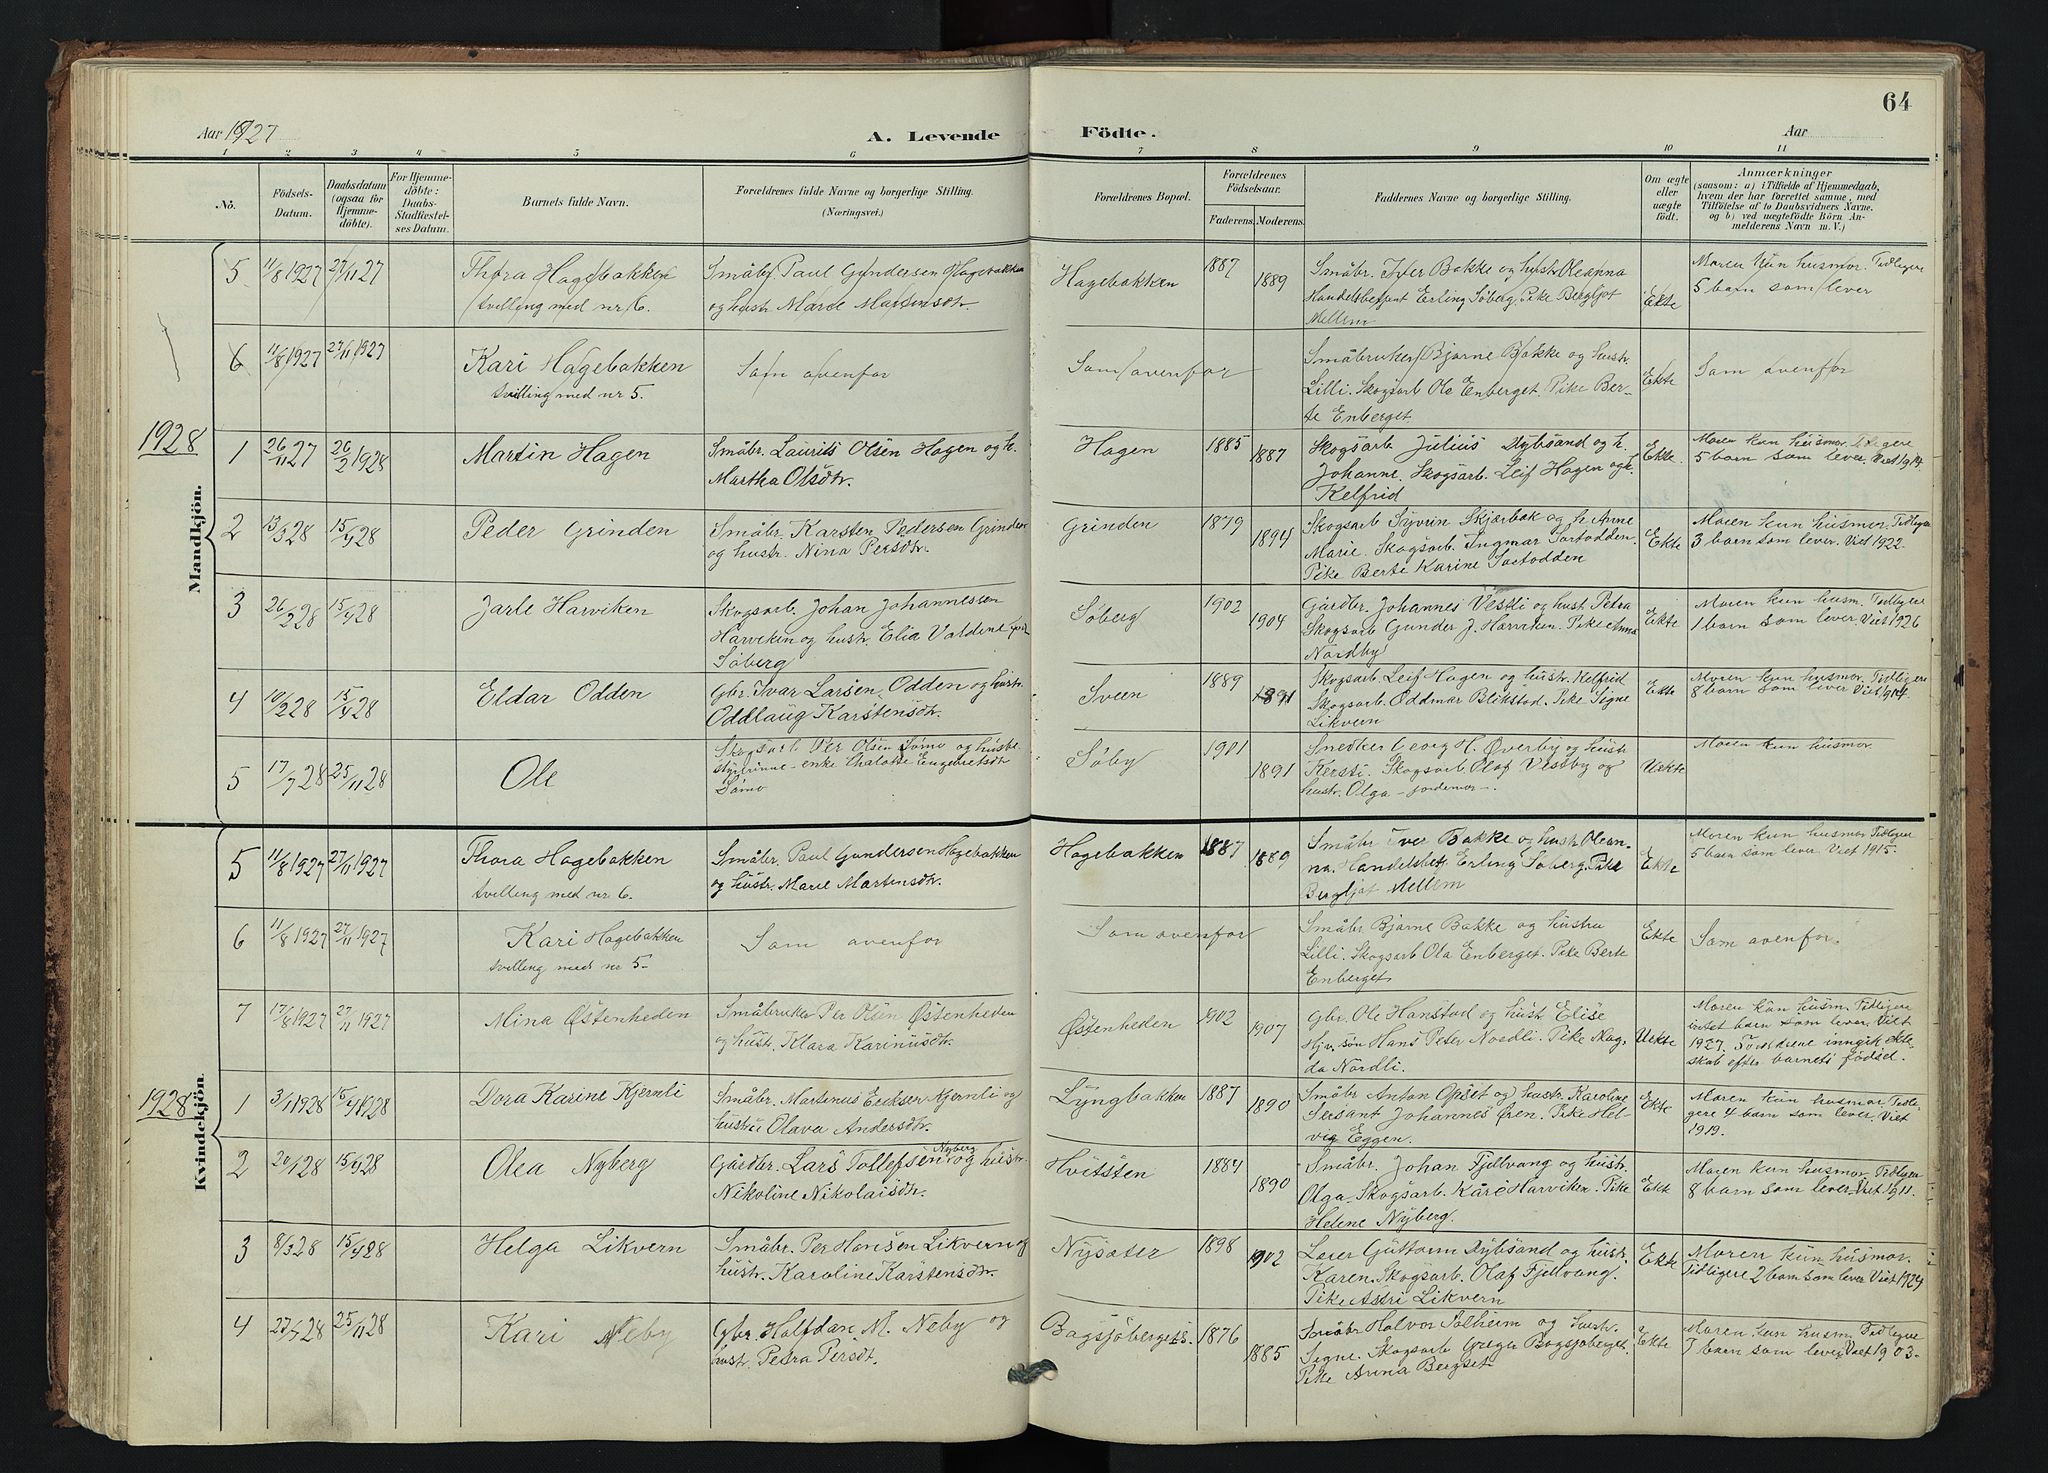 64
Aar 1927
A. Levende Födte.
Aar
1 2 3 4 5 6 7 8 9 10 11
No.
Födsels-Datum.
Daabsdatum (ogsaa for Hjemmedöbte).
For Hjemmedöbte: Daabs-Stadfæstelses Datum.
Barnets fulde Navn.
Forældrenes fulde Navne og borgerlige Stilling. (Næringsvei.)
Forældrenes Bopæl.
Forældrenes Födselsaar.
Faderens. Moderens.
Faddernes Navne og borgerlige Stilling.
Om ægte eller uægte födt.
Anmærkninger
(saasom: a) i Tilfælde af Hjemmedaab, hvem der har forrettet samme, med Tilföielse af to Daabsvidners Navne, og b) ved uægtefödte Börn Anmelderens Navn m. V.)
Mandkjön.
5 11/8 1927 27/11 27 Thora Hagebakken
tvilling med nr 6.
Småbr. Paul Gundersen Hagebakken
og hustr. Marie Martinsdtr.
Hagebakken 1887 1889
Småbr. Iver Bakke og hustr. Oleanna
Handelsbetjent Erling Søberg. Pike Bergljot
Mellem
Ekte
Moren kun husmor. Tidligere
5 barn som lever
6 11/8 1927 27/11 1927 Kari Hagebakken
tvilling med nr 5.
Som ovenfor
Som ovenfor
Småbruker Bjarne Bakke og hustr.
Lilli. Skogsarb Ola Enberget. Pike Ber-
te Enberget
Ekte
Som ovenfor
1928
1 26/11 27 26/2 1928 Martin Hagen
Småbr. Laurits Olsen Hagen og h.
Martha Olsdtr.
Hagen 1885 1887
Skogsarb Julius Dybsand og h.
Johanne. Skogsarb. Leif Hagen og h.
Kelfrid
Ekte.
Moren kun husmor. Tidligere
5 barn som lever. Viet 1914.
2 13/1 28 15/4 28 Peder Grinden
Småbr. Karsten Pedersen Grinden
og hustr. Nina Persdtr.
Grinden 1879 1894
Skogsarb Syvrin Skjærbak og h Anne
Marie. Skogsarb. Ingmar Sortodden.
Pike Berte Karine Sortodden
Ekte
Moren kun husmor. Tidligere
3 barn som lever. Viet 1922.
3 26/2 28 15/4 28 Jarle Harviken
Skogsarb. Johan Johannessen
Harviken og hustr. Elia Valdine
Søberg
Søberg 1902 1904
Gårdbr. Johannes Vestli og hust Petra
Skogsarb Gunder J. Harviken. Pike Anna
Nordby
Ekte
Moren kun husm. Tidligere
1 barn som lever. Viet 1926
4 10/2 28 15/4 28 Eldar Odden
Gbr. Ivar Larsen Odden og hustr.
Oddlaug Karstensdtr.
Sveen 1889 1891
Skogsarb. Leif Hagen og hustr. Kelfrid
Skogsarb. Oddmar Blikstad. Pike Signe
Likvern
Ekte
Moren kun husmor. Tidligere
8 barn som lever. Viet 1914.
5 17/7 28 25/11 28 Ole
Skogsarb Per Olsen Sømo og husbe-
styrerinne - enke Chalotte Engebretsdtr
Sømo
Søby 1901 1891
Snedker Georg H. Øverby og hustr
Kersti. Skogsarb. Olaf Vestby og
hustr. Olga - jordmor -.
Uekte
Moren kun husmor.
Kvindekjön.
5 11/8 1927 27/11 1927 Thora Hagebakken
tvilling med nr 6.
Småbr. Paul Gundersen Hagebakken
og hustr. Marie Martinsdtr.
Hagebakken 1887 1889
Småbr Iver Bakke og hustr. Olean-
na. Handelsbetj Erling Søberg. Pike
Bergljot Mellem
Ekte
Moren kun husmor Tidligere
5 barn som lever. Viet 1915.
6 11/8 1927 27/11 1927 Kari Hagebakken
tvilling med nr 5.
Som ovenfor
Som ovenfor
Småbr Bjarne Bakke og hustru
Lilli. Skogsarb Ola Enberget. Pike Berte
Enberget
Ekte
Som ovenfor.
7 17/8 1927 27/11 1927 Mina Østenheden
Småbruker Per Olsen Østenheden
og hustr. Klara Karinusdtr.
Østenheden 1902 1907
Gbr. Ole Hanstad og hustr Elise
Hjv. søn Hans Peter Nordli. Pike Mag-
da Nordli.
Uekte
Moren kun husm. Tidligere
intet barn som lever. Viet
1927. Foreldrene inngik ekte-
skab efter barnets fødsel.
1928
1 3/1 1928 15/4 1928 Dora Karine Kjernli
Småbr. Martinus Eriksen Kjernli og
hustru Olava Andersdtr.
Lyngbakken 1887 1890
Småbr Anton Opset og hustr. Karoline
Sersant Johannes Øren. Pike Hel-
vig Eggen.
Ekte
Moren kun husmor Tidli-
gere 4 barn som lever. Viet
1919.
2 20/1 28 15/4 28 Olea Nyberg
Gårdbr. Lars Tollefsen Nyberg og hustr.
Nikoline Nikolaisdtr.
Hvitsten 1884 1890
Småbr. Johan Fjellvang og hustr.
Olga. Skogsarb. Kåre Harviken. Pike
Helene Nyberg.
Ekte
Moren kun husmor. Tidligere
8 barn som lever. Viet 1911.
3 8/3 28 15/4 28 Helga Likvern
Småbr. Per Hansen Likvern og
hustr. Karoline Karstensdtr.
Nysæter 1898 1902
Lærer Guttorm Dybsand og hustr
Karen. Skogsarb. Olaf Fjellvang.
Pike Astri Likvern
Ekte
Moren kun husmor.
Tidligere 2 barn som lever Viet 1924
4 27/7 28 25/11 28 Kari Neby
Gbr. Halfdan M. Neby og
hustr. Petra Persdt.
Bagsjøberget 1876 1885
Småbr Halvor Solheim og hustr.
Signe. Skogsarb Greger Bagsjøberget.
Pike Anna Bergset
Ekte
Moren kun husm Tidligere
7 barn som lever Viet 1903.